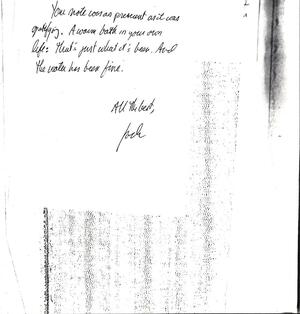 You note was as present as it was
gratifying. A warm bath in your own
life: that's just what it's been. And
the water has been fine.
All the best,